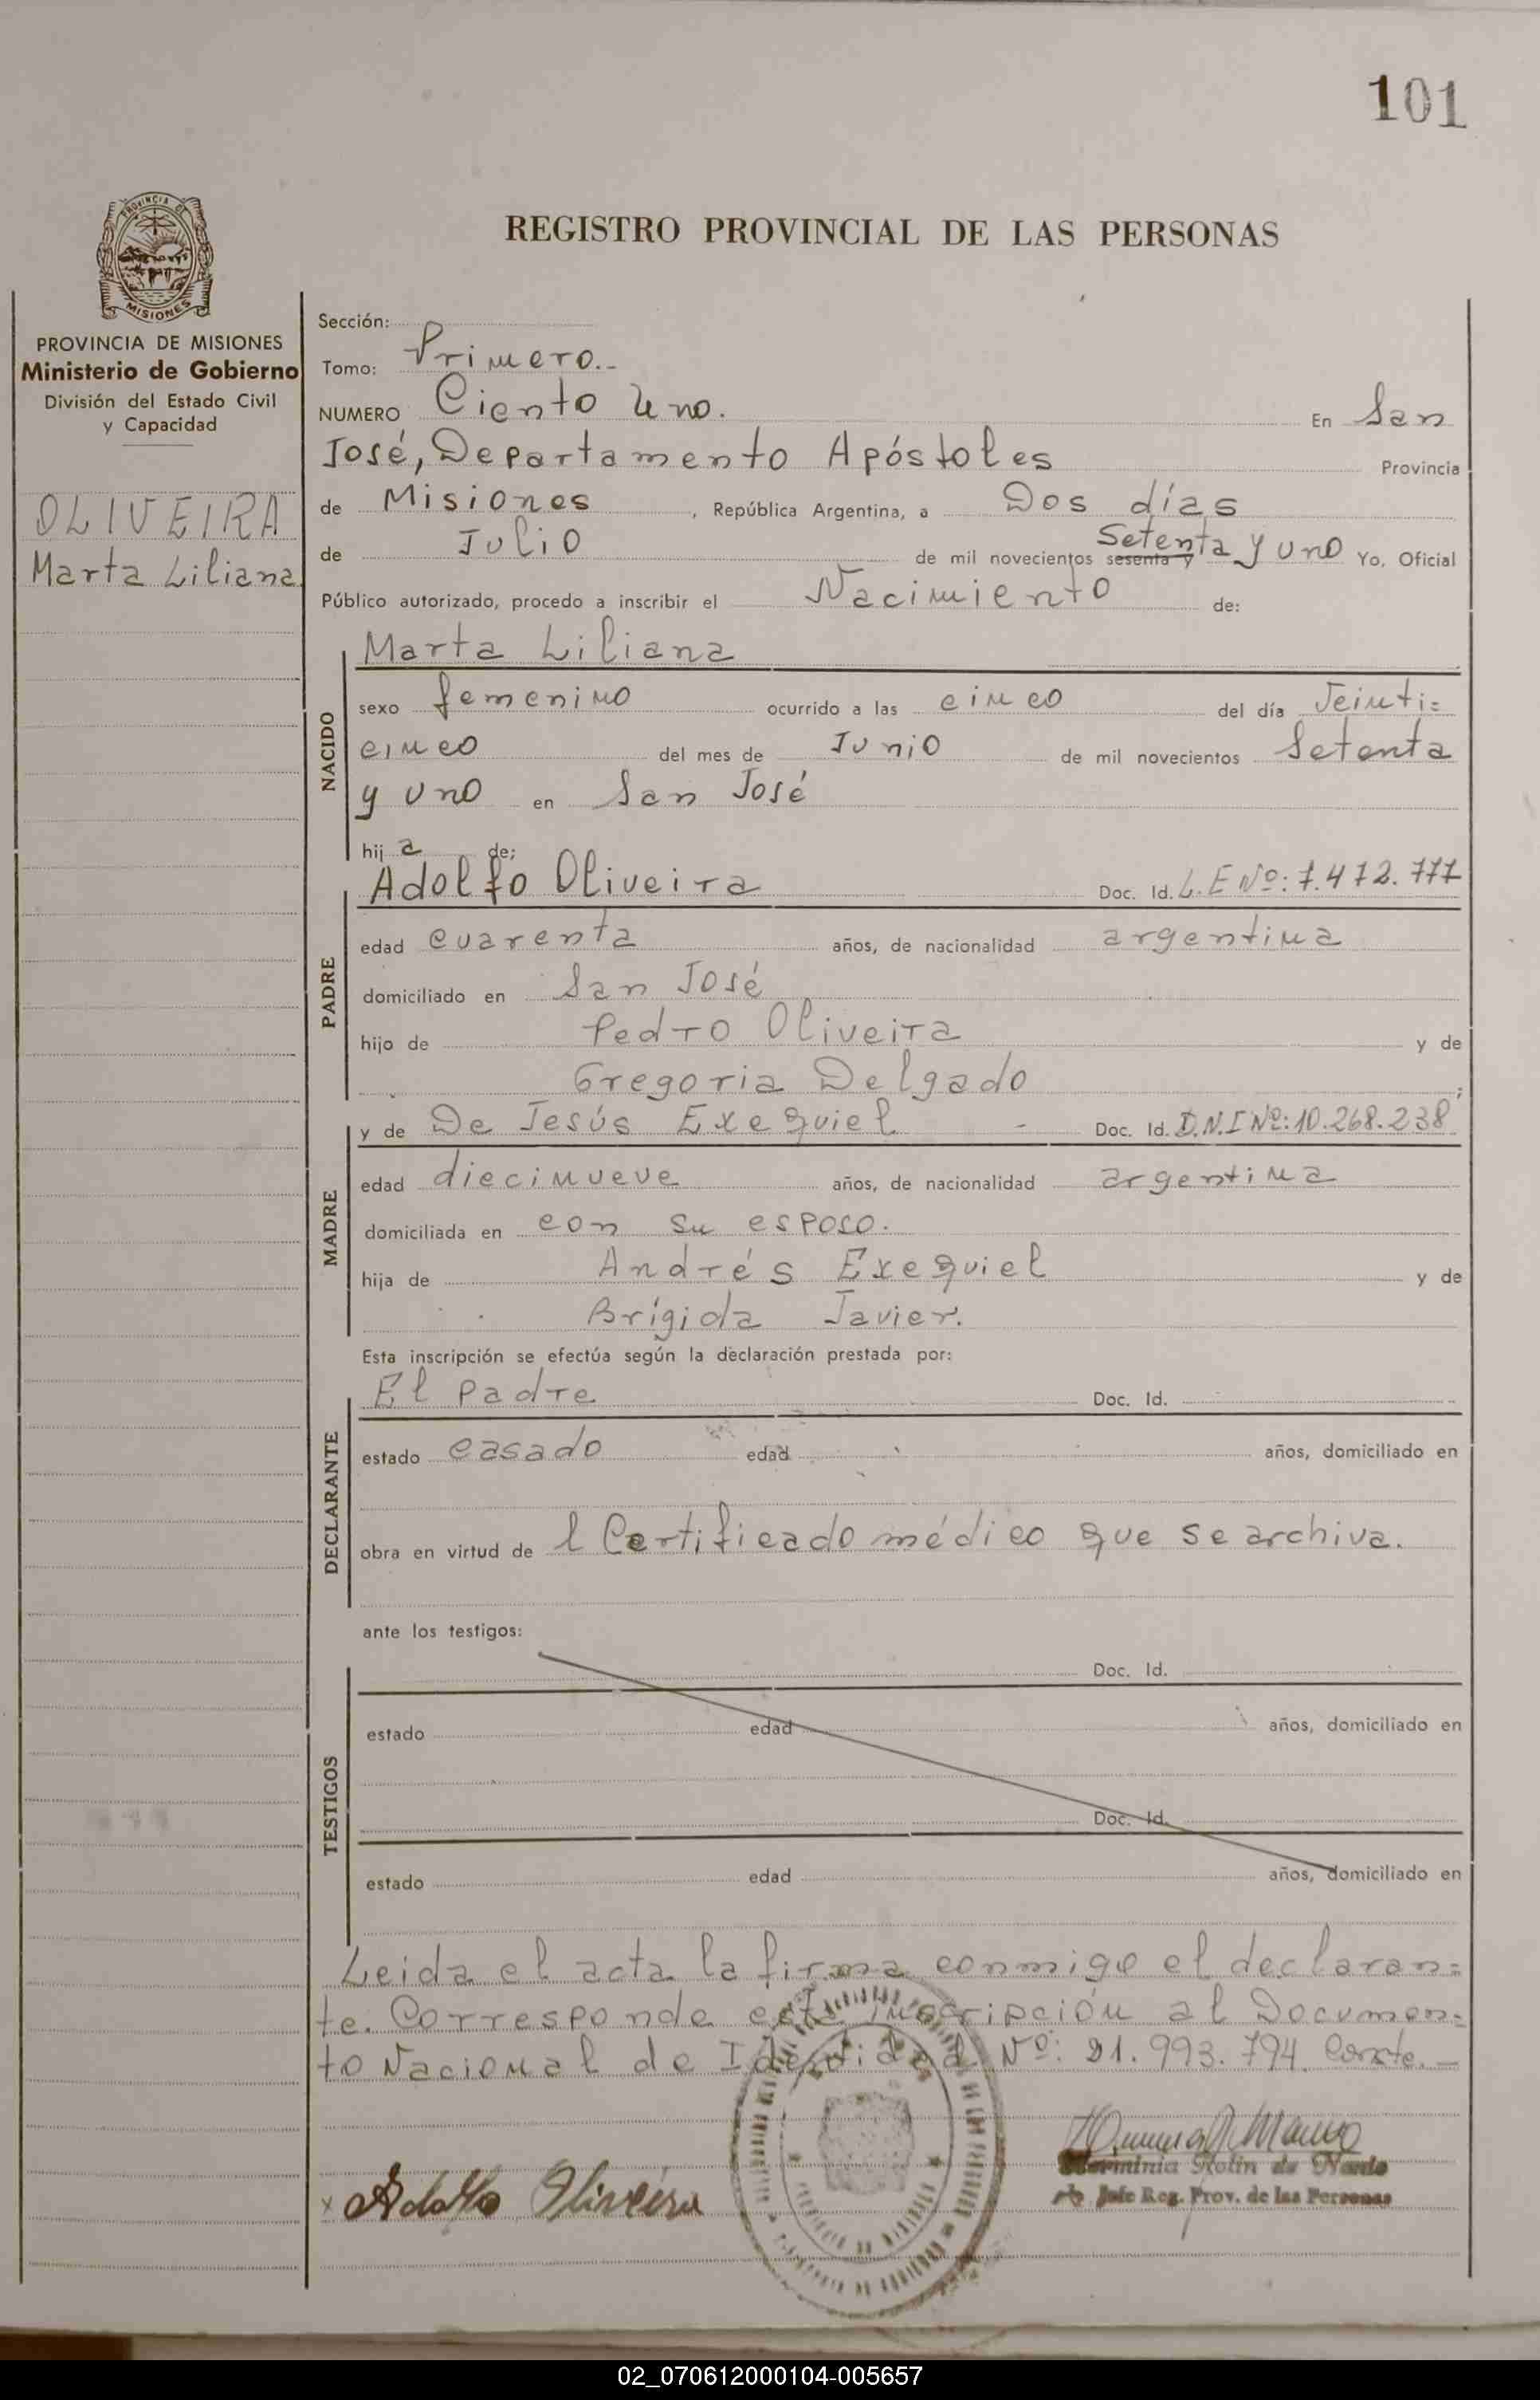 101
PROVINCIA DE
MISIONES
REGISTRO PROVINCIAL DE LAS PERSONAS
PROVINCIA DE MISIONES
Ministerio de Gobierno
División del Estado Civil
y Capacidad
OLIVEIRA
Marta Liliana
Sección:
Tomo: Primero.-
NUMERO Ciento Uno. En San
José, Departamento Apóstoles Provincia
de Misiones, República Argentina, a Dos días
de Julio de mil novecientos sesenta y Setenta y uno Yo, Oficial
Público autorizado, procedo a inscribir el Nacimiento de:
NACIDO
Marta Liliana
sexo femenino ocurrido a las cinco del día Veinti=
cinco del mes de Junio de mil novecientos Setenta
y uno en San José
hija de:
PADRE
Adolfo Oliveira Doc. Id. L.E Nº: 7.472.777
edad cuarenta años, de nacionalidad argentina
domiciliado en San José
hijo de Pedro Oliveira y de
Gregoria Delgado;
MADRE
y de De Jesús Exequiel - Doc. Id. D.N.I Nº: 10.268.238
edad diecinueve años, de nacionalidad argentina
domiciliada en con su esposo.
hija de Andrés Exequiel y de
Brígida Javier.
Esta inscripción se efectúa según la declaración prestada por:
DECLARANTE
El padre Doc. Id.
estado casado edad años, domiciliado en
obra en virtud de l Certificado médico que se archiva.
ante los testigos:
TESTIGOS
Doc. Id.
estado edad años, domiciliado en
Doc. Id.
estado edad años, domiciliado en
Leida el acta la firma conmigo el declaran=
te. Corresponde esta inscripción al Documen=
to Nacional de Identidad Nº: 21.993.794. Conste.-
x Adolfo Oliveira
Herminia Rolin de
Jefe Reg. Prov. de las Personas
02_070612000104-005657